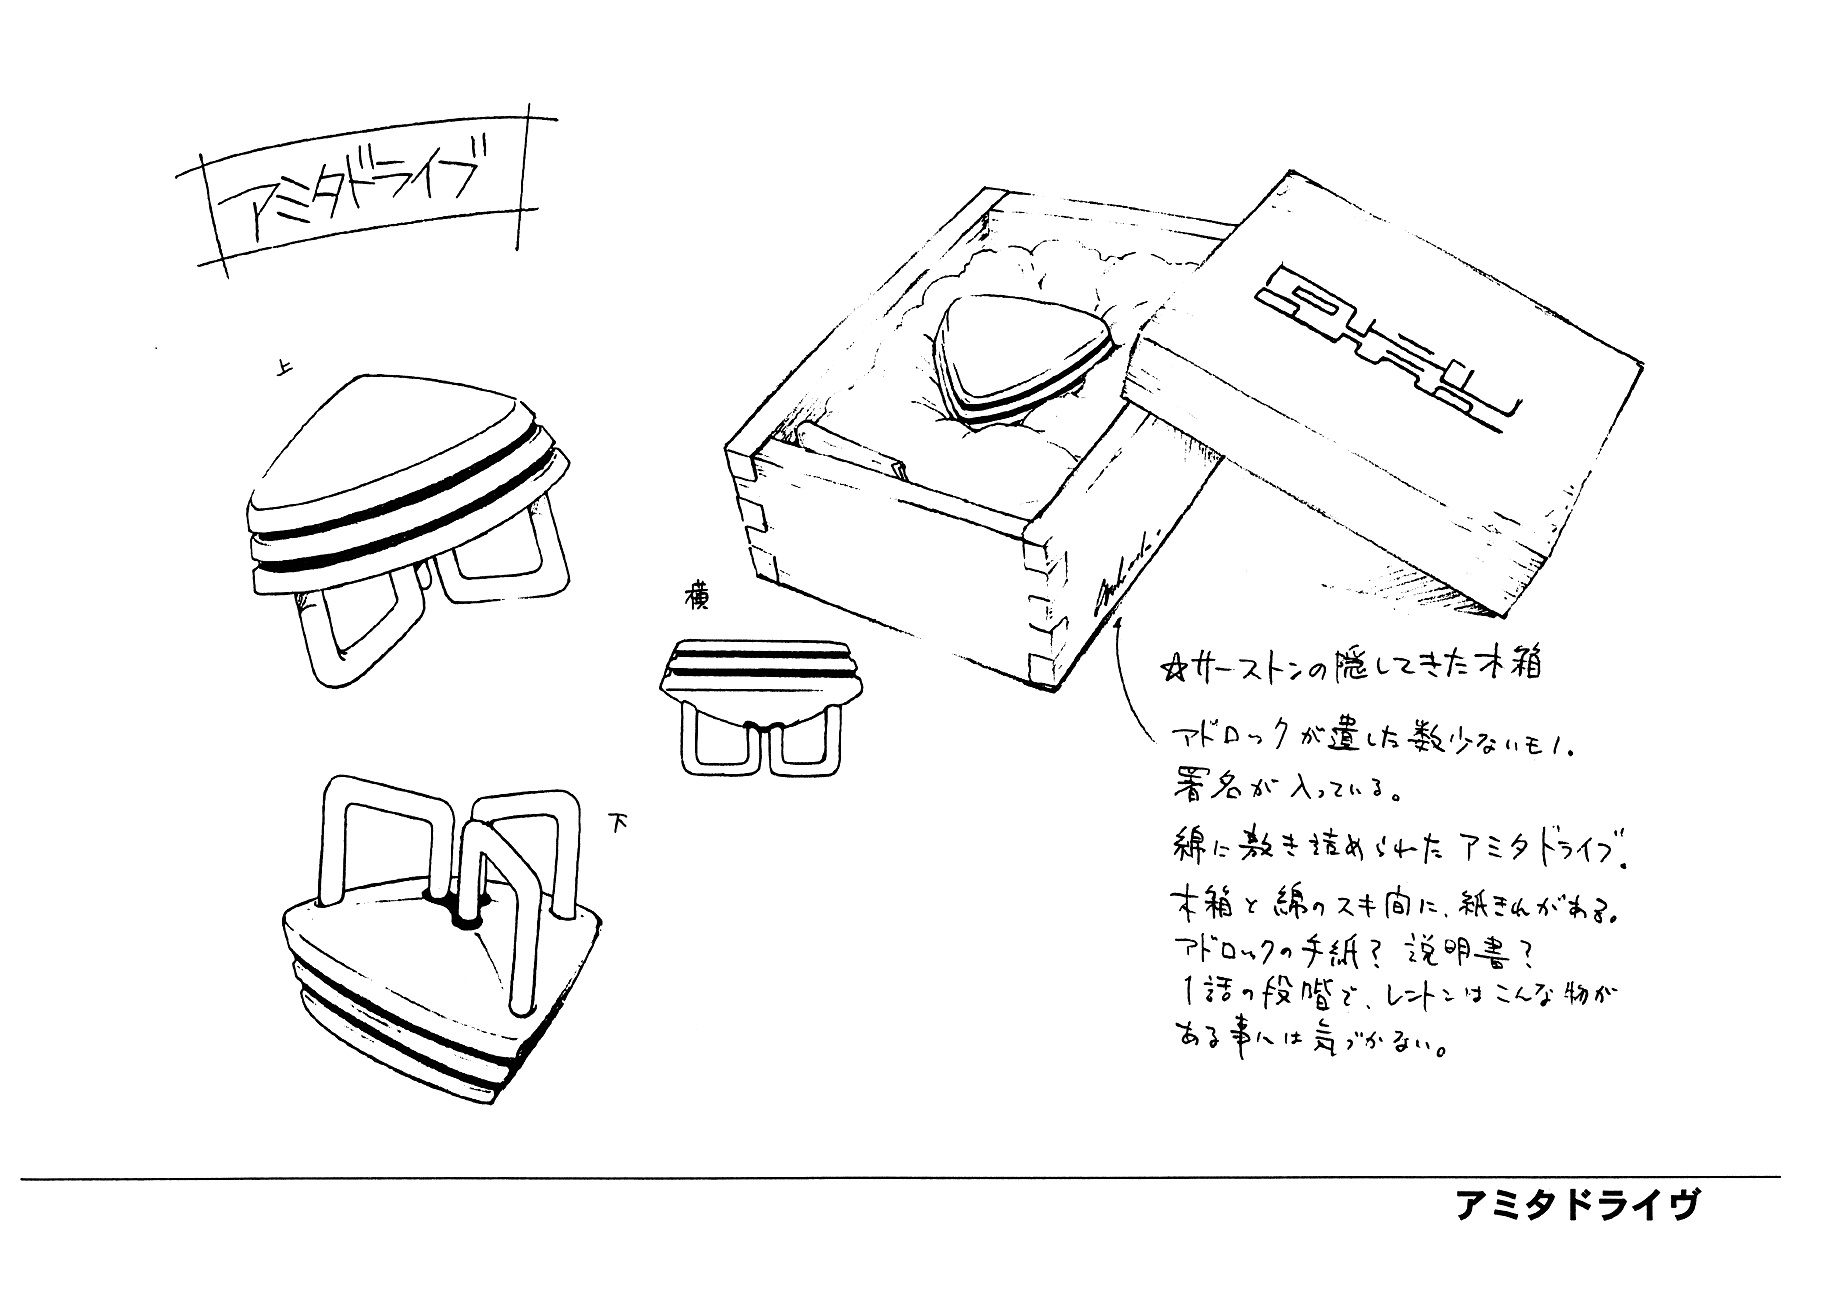 アミタドライブ
上
横
下
☆サーストンの隠してきた木箱
アドロックが遺した数少ないモノ.
署名が入っている。
綿に敷き詰められたアミタドライブ.
木箱と綿のスキ間に、紙きれがある。
アドロックの手紙? 説明書?
1話の段階で、レントンはこんな物が
ある事には気づかない。
アミタドライヴ